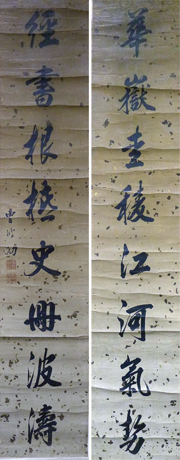 華嶽圭稜江河氣勢
經書根柢史冊波濤